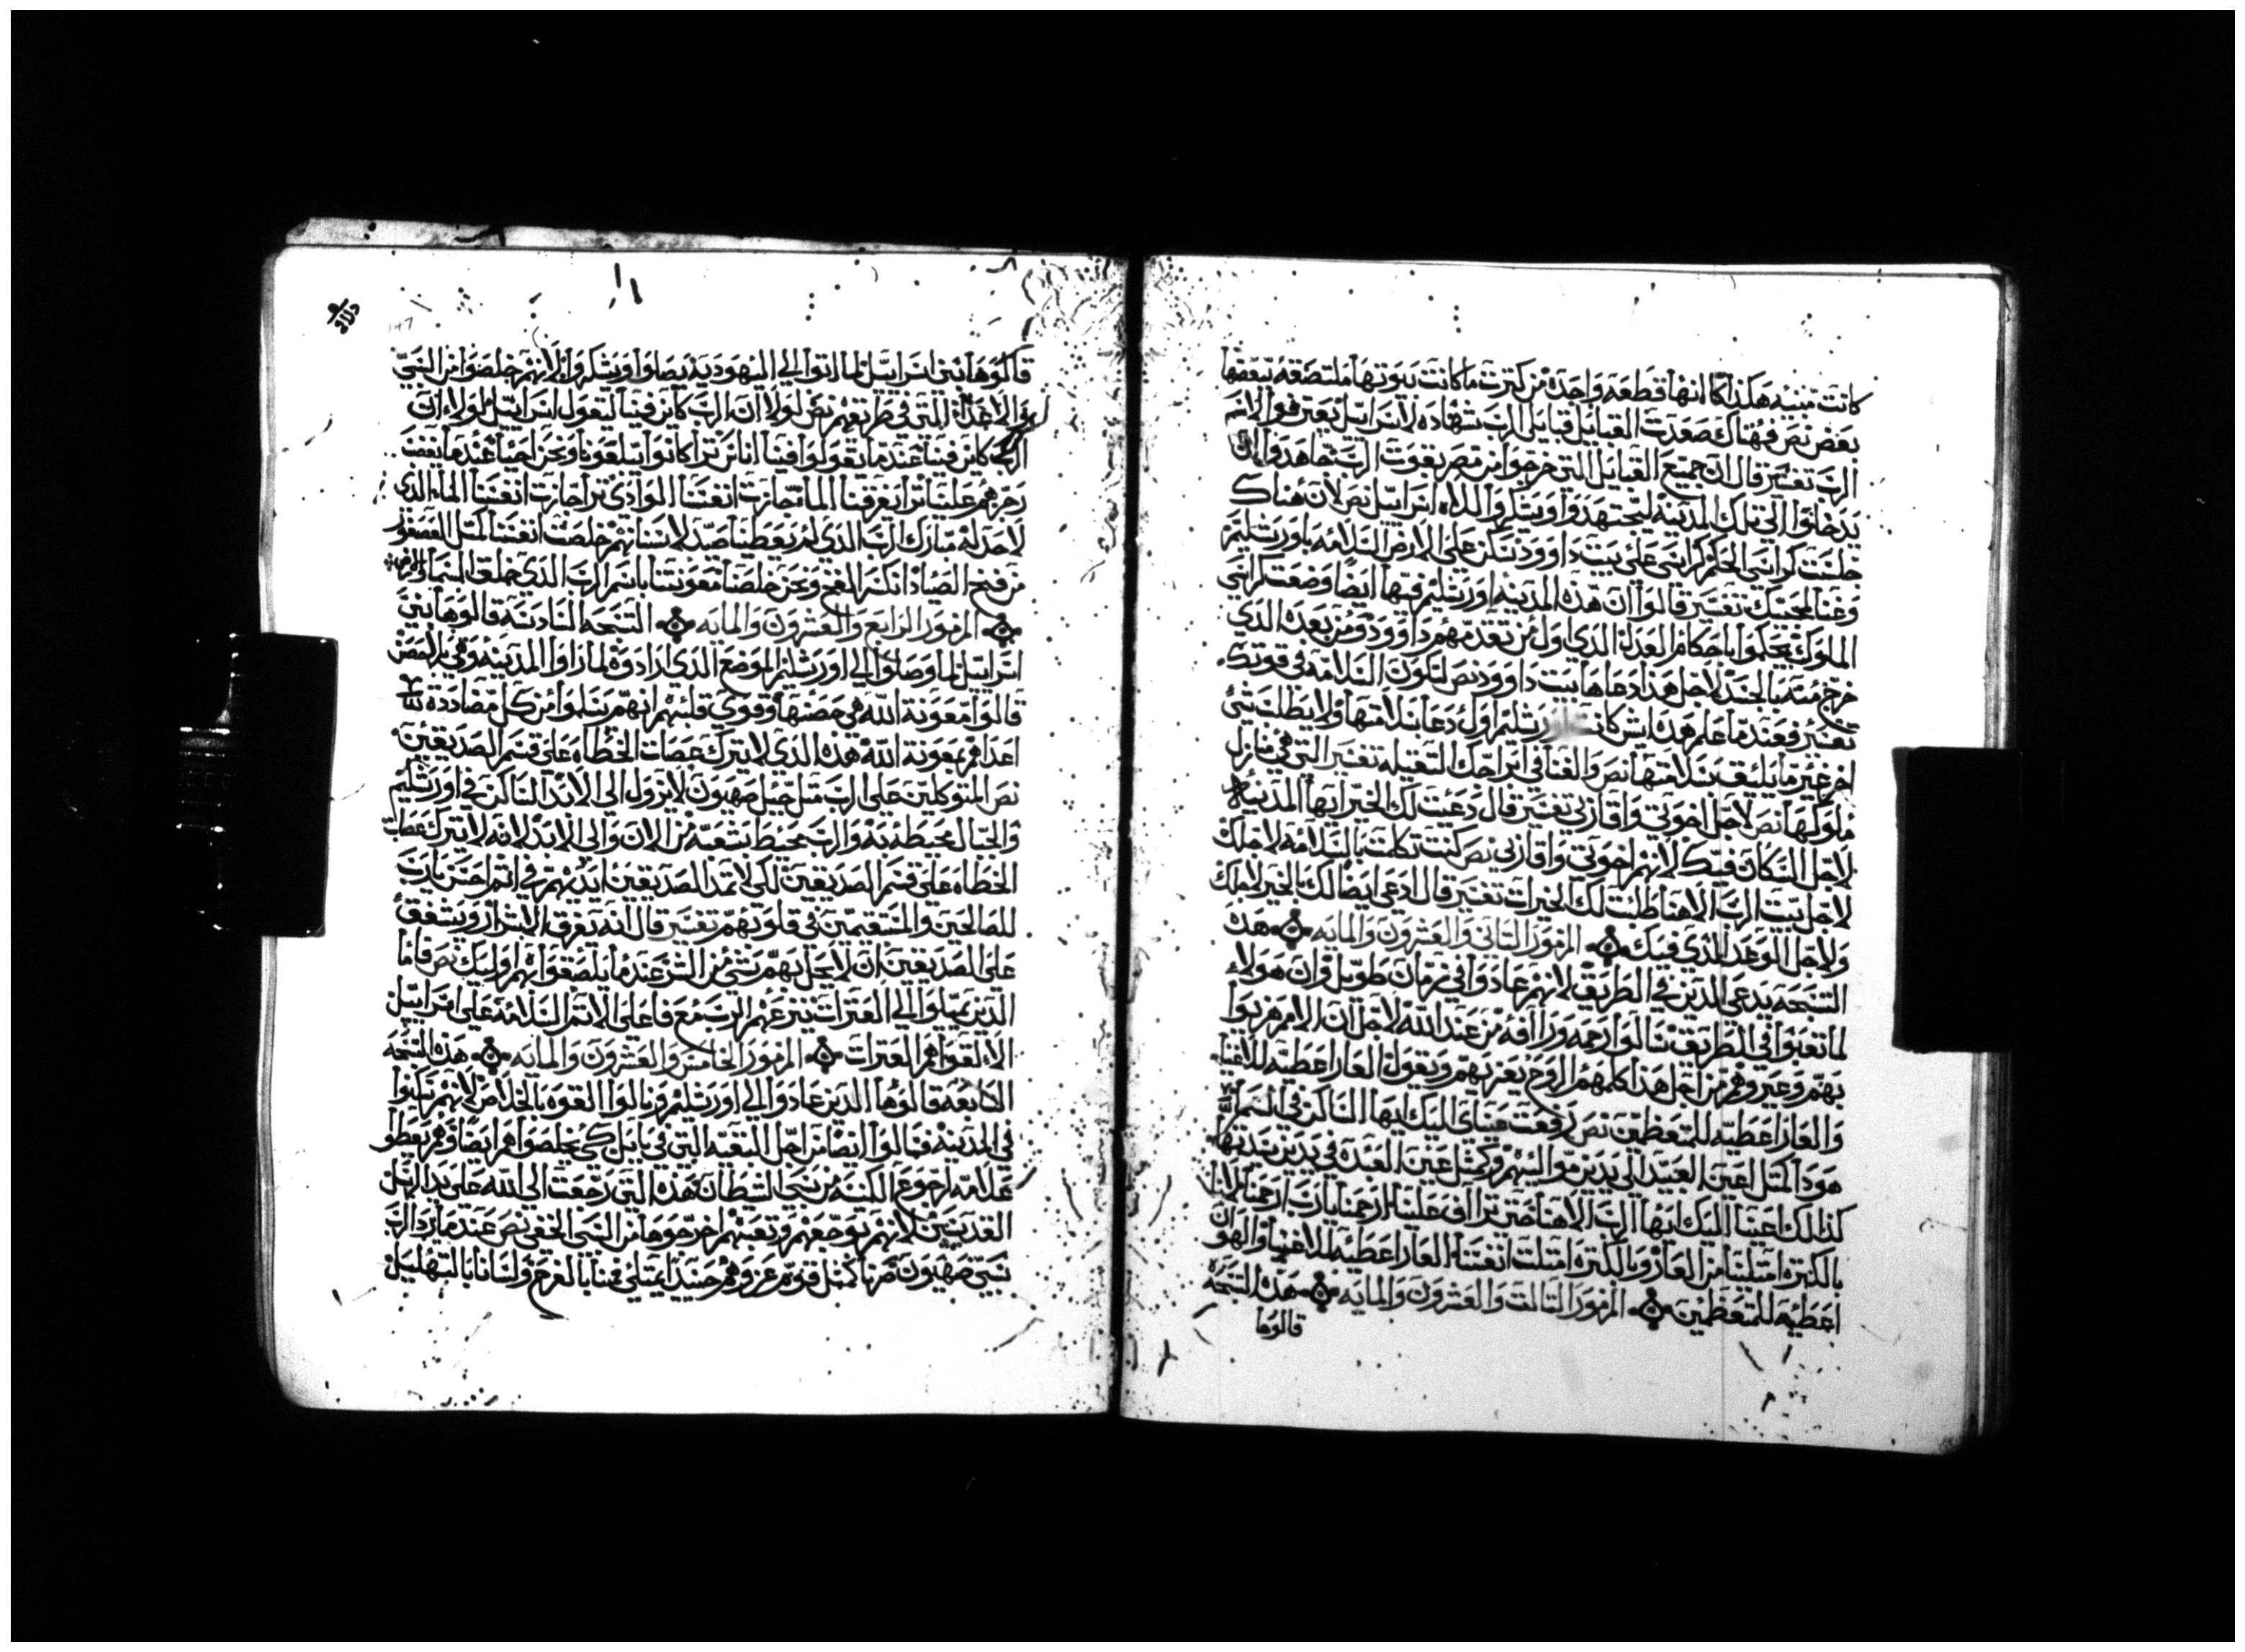 كانت مبنيه هكذا كما انها قطعه واحده من كترت ما كانت بيوتها ملتصقه ببعضها
بعض نص فهناك صعدت القبايل قبايل الرب شهاده لاسراييل يعترفوا لاسم
الرب تفسير قال ان جميع القبايل التي خرجوا من مصر بقوت الرب جاهدوا الى ان
يدخلوا الي تلك المدينه ليجتهدوا ويشكروا الاه اسراييل نص لان هناك
جلست كراسي الحكم كراسي على بيت داوود تسكن على الارض السلامه ياورشليم
وغنا لمحبيك تفسير قالوا ان هذه المدينه اورشليم فيها ايضا وضعت كراسي
الملوك يحكموا باحكام العدل الذي اول من تقدمهم داوود ومن بعده الذي
خرج منه بالجسد لاجل هذا دعاها بيت داوود نص لتكون السلامه في قوتك
تفسير فعندما علم هذه ايش كانت اورشليم اول دعا بسلامتها ولا يطلب شي
اخر غير ما يليق بسلامتها نص والغنا في ابراجك التقيله تفسير التي هي منازل
ملوكها نص لاجل اخوتي واقاربي تفسير قال دعيت لك الخير ايها المدينه
لاجل السكان فيك لانهم اخوتي واقاربي نص كنت تكلمت بالسلامه لاجلك
لاجل بيت الرب الاهنا طلبت لك الخيرات تفسير قال ادعي ايضا لك بالخير لاجلك
ولاجل الوعد الذي فيك المزمور التاني والعشرون والمايه هذه
التسبحه يدعي الذين في الطريق لانهم عادوا في زمان طويل وان هولاء
لما تعبوا في الطريق سالوا رحمه ورافه من عند الله لاجل ان الامم هزيوا
بهم وعيروهم من اجل هذا كلمهم الروح يعزيهم ويقول العار اعطيه للاغنيا
والعار اعطيه للمتعظمين نص رفعت عيناي اليك ايها الساكن في السما
هوذا كمتل اعين العبيد الى يدين مواليهم وكمتل عين العبده في يدين سيدتها
كذالك اعيننا اليك ايها الرب الاهنا حتى تراف علينا ارحمنا يارب ارحمنا لاننا
بالكتره امتلينا من العار وبالكتره امتلت انفسنا العار اعطيه للاغنيا والهوان
اعطيه للمتعظمين المزمور التالت والعشرون والمايه هذه التسبحه
قالوها
قالوها بني اسراييل لما اتوا الي اليهوديه يصلوا ويشكروا لانهم خلصوا من السبي
والاعدا التي في طريقهم نص لولا ان الرب كاين فينا ليقول اسراييل لولا ان
الرب كاين فينا عندما يقولوا فينا اناس ترا كانوا يبلعونا ونحن احيا عندما يغضب
رجزهم علينا ترا يغرقنا الما جازت انفسنا الوادي ترا جازت انفسنا الماء الذي
لا حد له مبارك الرب الذي لم يعطينا صيد لاسنانهم خلصت انفسنا كمتل العصفور
من فخ الصياد انكسر الفخ ونحن خلصنا معونتنا باسم الرب الذي خلق السما والارض
المزمور الرابع والعشرون والمايه التسبحه السادسه قالوها بني
اسراييل لما وصلوا الي اورشليم الموضع الذي ارادوه لما راوا المدينه وهي بلا حصن
قالوا معونة الله هي حصنها وقوي قلبهم انهم يسلموا من كل مصاددة
اعداهم بمعونة الله هذه الذي لا يترك عصات الخطاه على قسم الصديقين
نص المتوكلين على الرب متل جبل صهيون لا يزول الى الابد الساكن في اورشليم
والجبال محيطه به والرب محيط بشعبه من الان والى الابد لانه لا يترك عصات
الخطاه على قسم الصديقين لكي لا تمد الصديقين ايديهم في اتم احسن يارب
للصالحين والمستقيمين في قلوبهم تفسير قال الله يعرف الاشرار ويشفق
على الصديقين ان لا يحل بهم شي من الشر عندما يلصقوا بهم اوليك نص فاما
الذين يميلوا الي العترات ينزعهم الرب مع فاعلى الاتم السلامه على اسراييل
المزمور الخامس والعشرون والمايه هذه التسبحه
السابعه قالوها الذين عادوا الي اورشليم ونالوا القوه بالخلاص لانهم سكنوا
في المدينه وسالوا ايضا من اجل البقيه التي في بابل كي يخلصوا هم ايضا وهم يعطوا
علامة رجوع الكنسه من سبي الشيطان هذه التي رجعت الى الله على يد الرسل
القديسين لانهم بوجعهم وتعبهم اخرجوها من السبي الخفي نص عندما يرد الرب
سبي صهيون صرنا كمتل قوم عزوهم حينيذا يمتلي فمنا بالفرح ولساننا بالتهليل